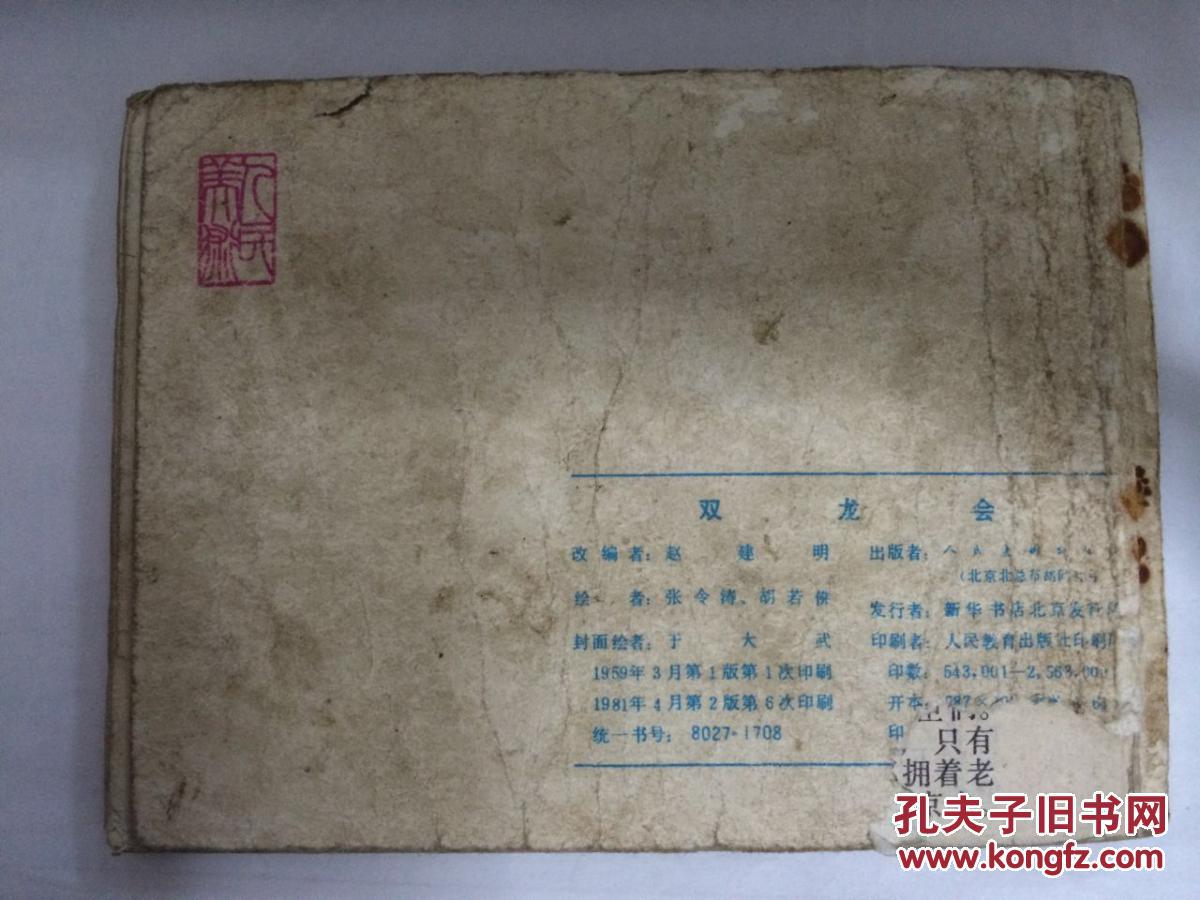 人民美术
双龙会
改编者：赵建明
绘者：张令涛、胡若佛
封面绘者：于大武
1959年3月第1版第1次印刷
1981年4月第2版第6次印刷
统一书号：8027·1708
出版者：人民美术
（北京北总布胡同
发行者：新华书店北京发行
印刷者：人民教育出版社印刷
印数：543,001—2,563,00
开本：787×
印
只有
拥着老
孔夫子旧书网
www.kongfz.com